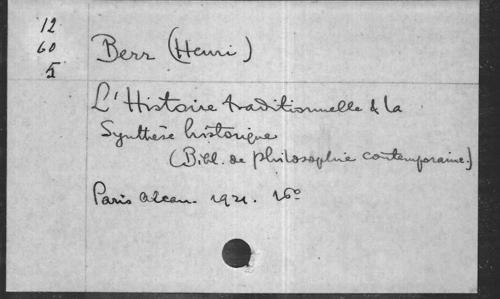 12
60
5
Berr (Henri)
L'Histoire traditionnelle & la
Synthèse historique
(Bibl. de philosophie contemporaine.)
Paris Alcan. 1921. 16º